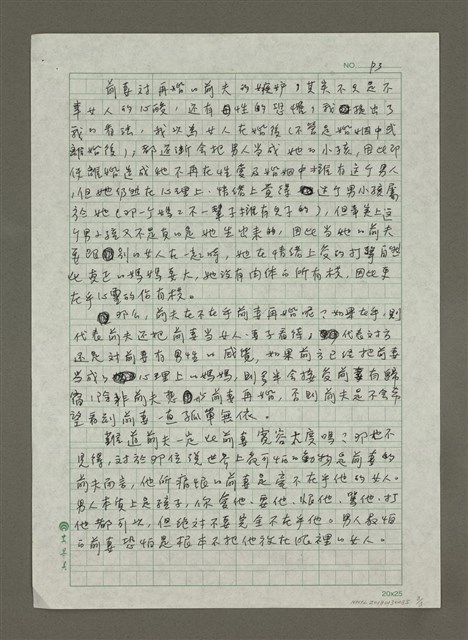 NO. P3
前妻对再婚的前夫的嫉妒,其实不只是不
幸女人的心酸,还有母性的恐惧,我提出了
我的看法,我以為女人在婚後(不管是婚姻中或
離婚後),都逐漸会把男人当成她的小孩,因此即
使離婚造成她不再在性愛及婚姻中擁有这个男人
,但她仍然在心理上、情緒上覺得这个男小孩屬
於她(即一个媽媽一輩子擁有兒子的),但事实上这
个男小孩又不是真的是她生出來的,因此当她的前夫
要跟別的女人在一起時,她在情緒上受的打擊自然
比真正的媽媽要大,她沒有肉体的所有权,因此更
在乎心靈的佔有权。
那么,前夫在不在乎前妻再婚呢?如果在乎,則
代表前夫还把前妻当女人、妻子看待,代表对方
还是对前妻有男性的感覺,如果前夫已經把前妻
当成了心理上的媽媽,則多半会接受前妻有歸
宿(除非前夫靠前妻再婚,否則前夫是不会希
望看到前妻一直孤單無依。
難道前夫一定比前妻寬容大度嗎?那也不
見得,对於那位說世界上最可怕的動物是前妻的
前夫而言,他所痛恨的前妻是毫不在乎他的女人。
男人本質上是孩子,你愛他、要他、恨他、罵他、打
他都可以,但絕对不要完全不在乎他。男人最怕
的前妻恐怕是根本不把他放在眼裡的女人。
20x25